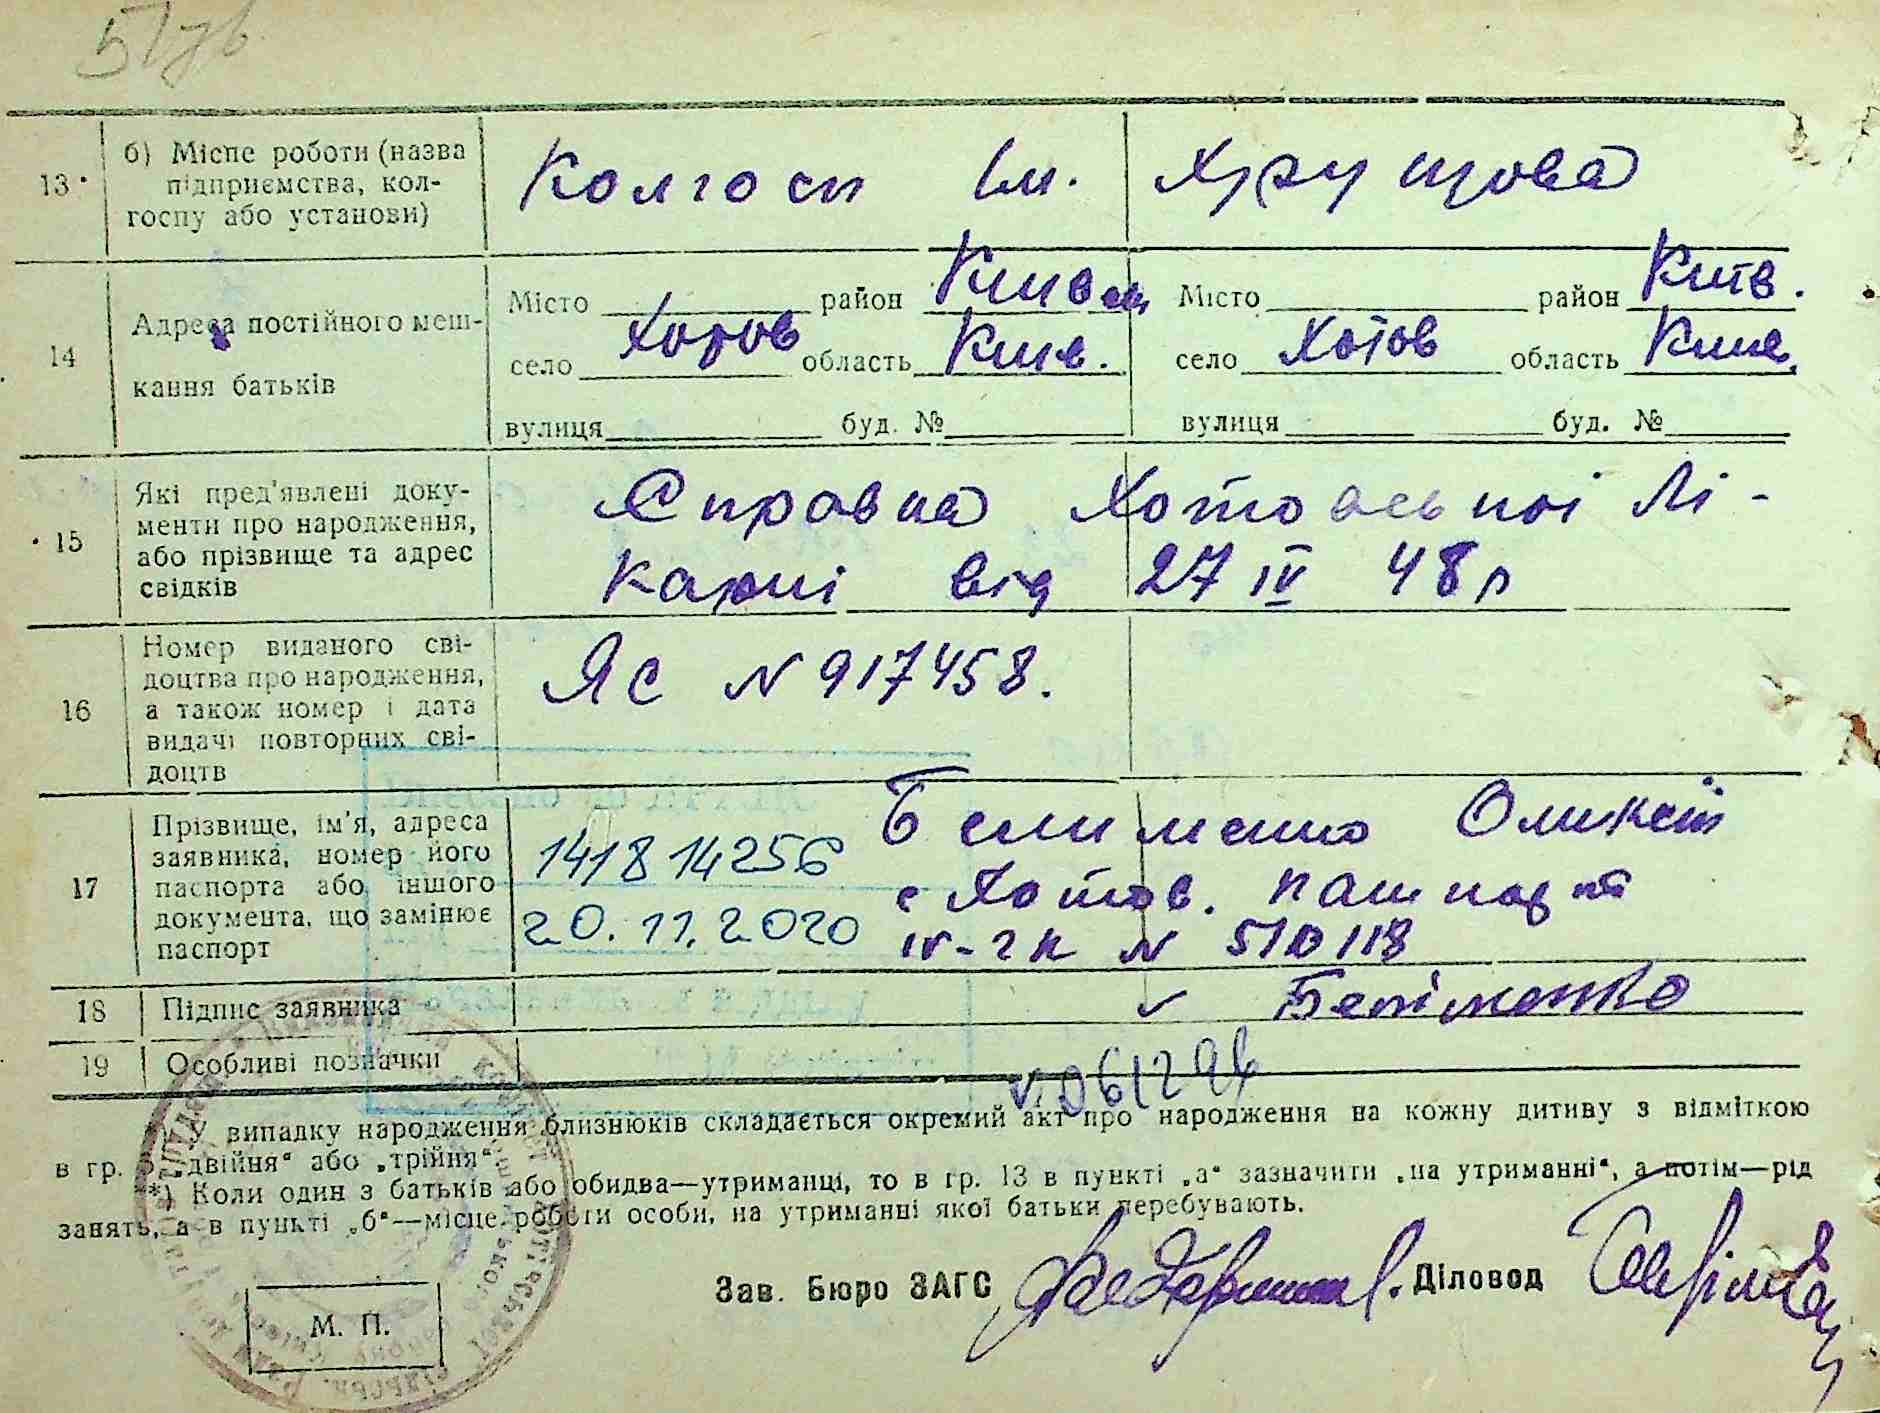 57 зв
13. б) Місце роботи (назва підприємства, колгоспу або установи) Колгосп ім. Хрущова
14 Адреса постійного мешкання батьків
Місто район Київськ Місто район Київ.
село Хотов область Київ. село Хотов область Київ.
вулиця буд. № вулиця буд. №
15 Які пред'явлені документи про народження, або прізвище та адрес свідків
Справка Хотовської Лі-
карні від 27 IV 48 р
16 Номер виданого свідоцтва про народження, а також номер і дата видачі повторних свідоцтв
ЯС N 917458.
17 Прізвище, ім'я, адреса заявника, номер його паспорта або іншого документа, що замінює паспорт
141814256
20.11.2020
с Хотов. пашпорт
IV-гк N 510118
18 Підпис заявника
19 Особливі позначки
У випадку народження близнюків складається окремий акт про народження на кожну дитину з відміткою
в гр. „двійня“ або „трійня“.
*) Коли один з батьків або обидва—утриманці, то в гр. 13 в пункті „а“ зазначити „на утриманні“, а потім—рід
занять, а в пункті „б“—місце роботи особи, на утриманні якої батьки перебувають.
Зав. Бюро ЗАГС Діловод
М. П.